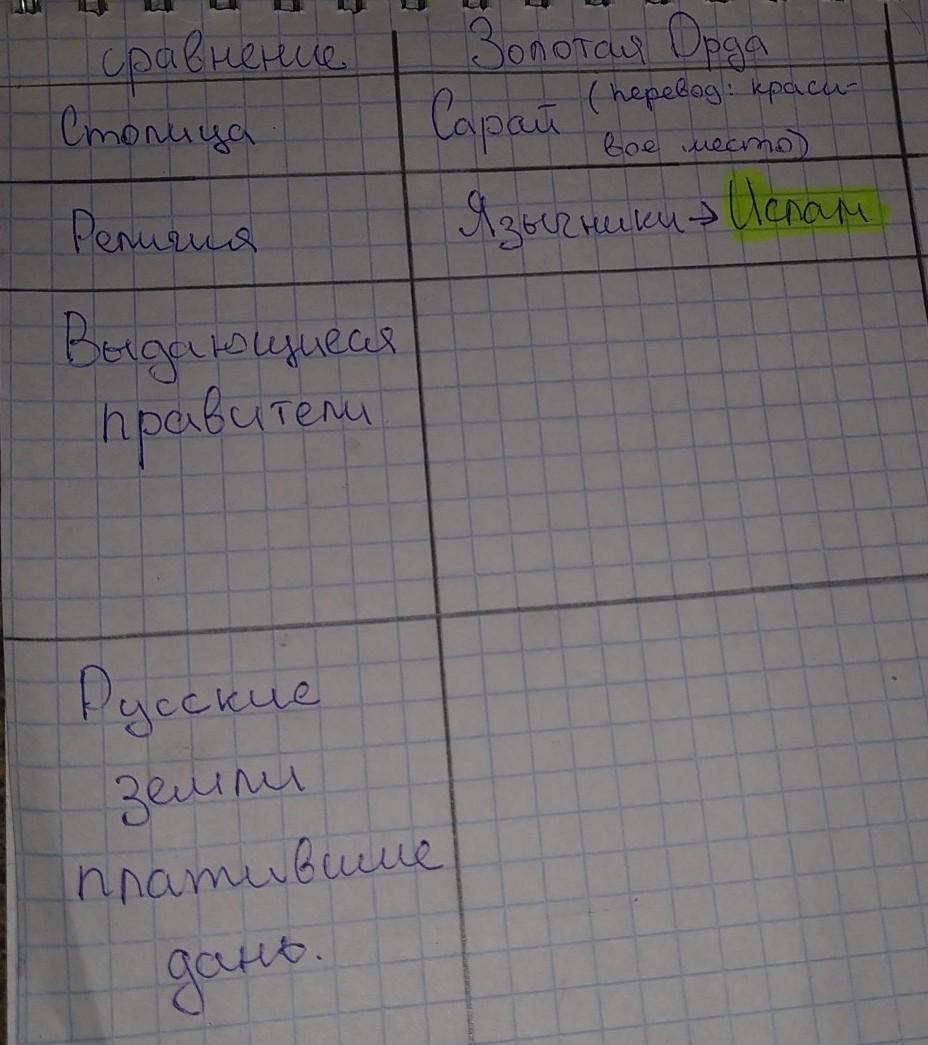 сравнение
Золотая Орда
Столица
Сарай (перевод: краси-
вое место)
Религия
Язычники → Ислам
Выдающиеся
правители
Русские
земли
платившие
дань.